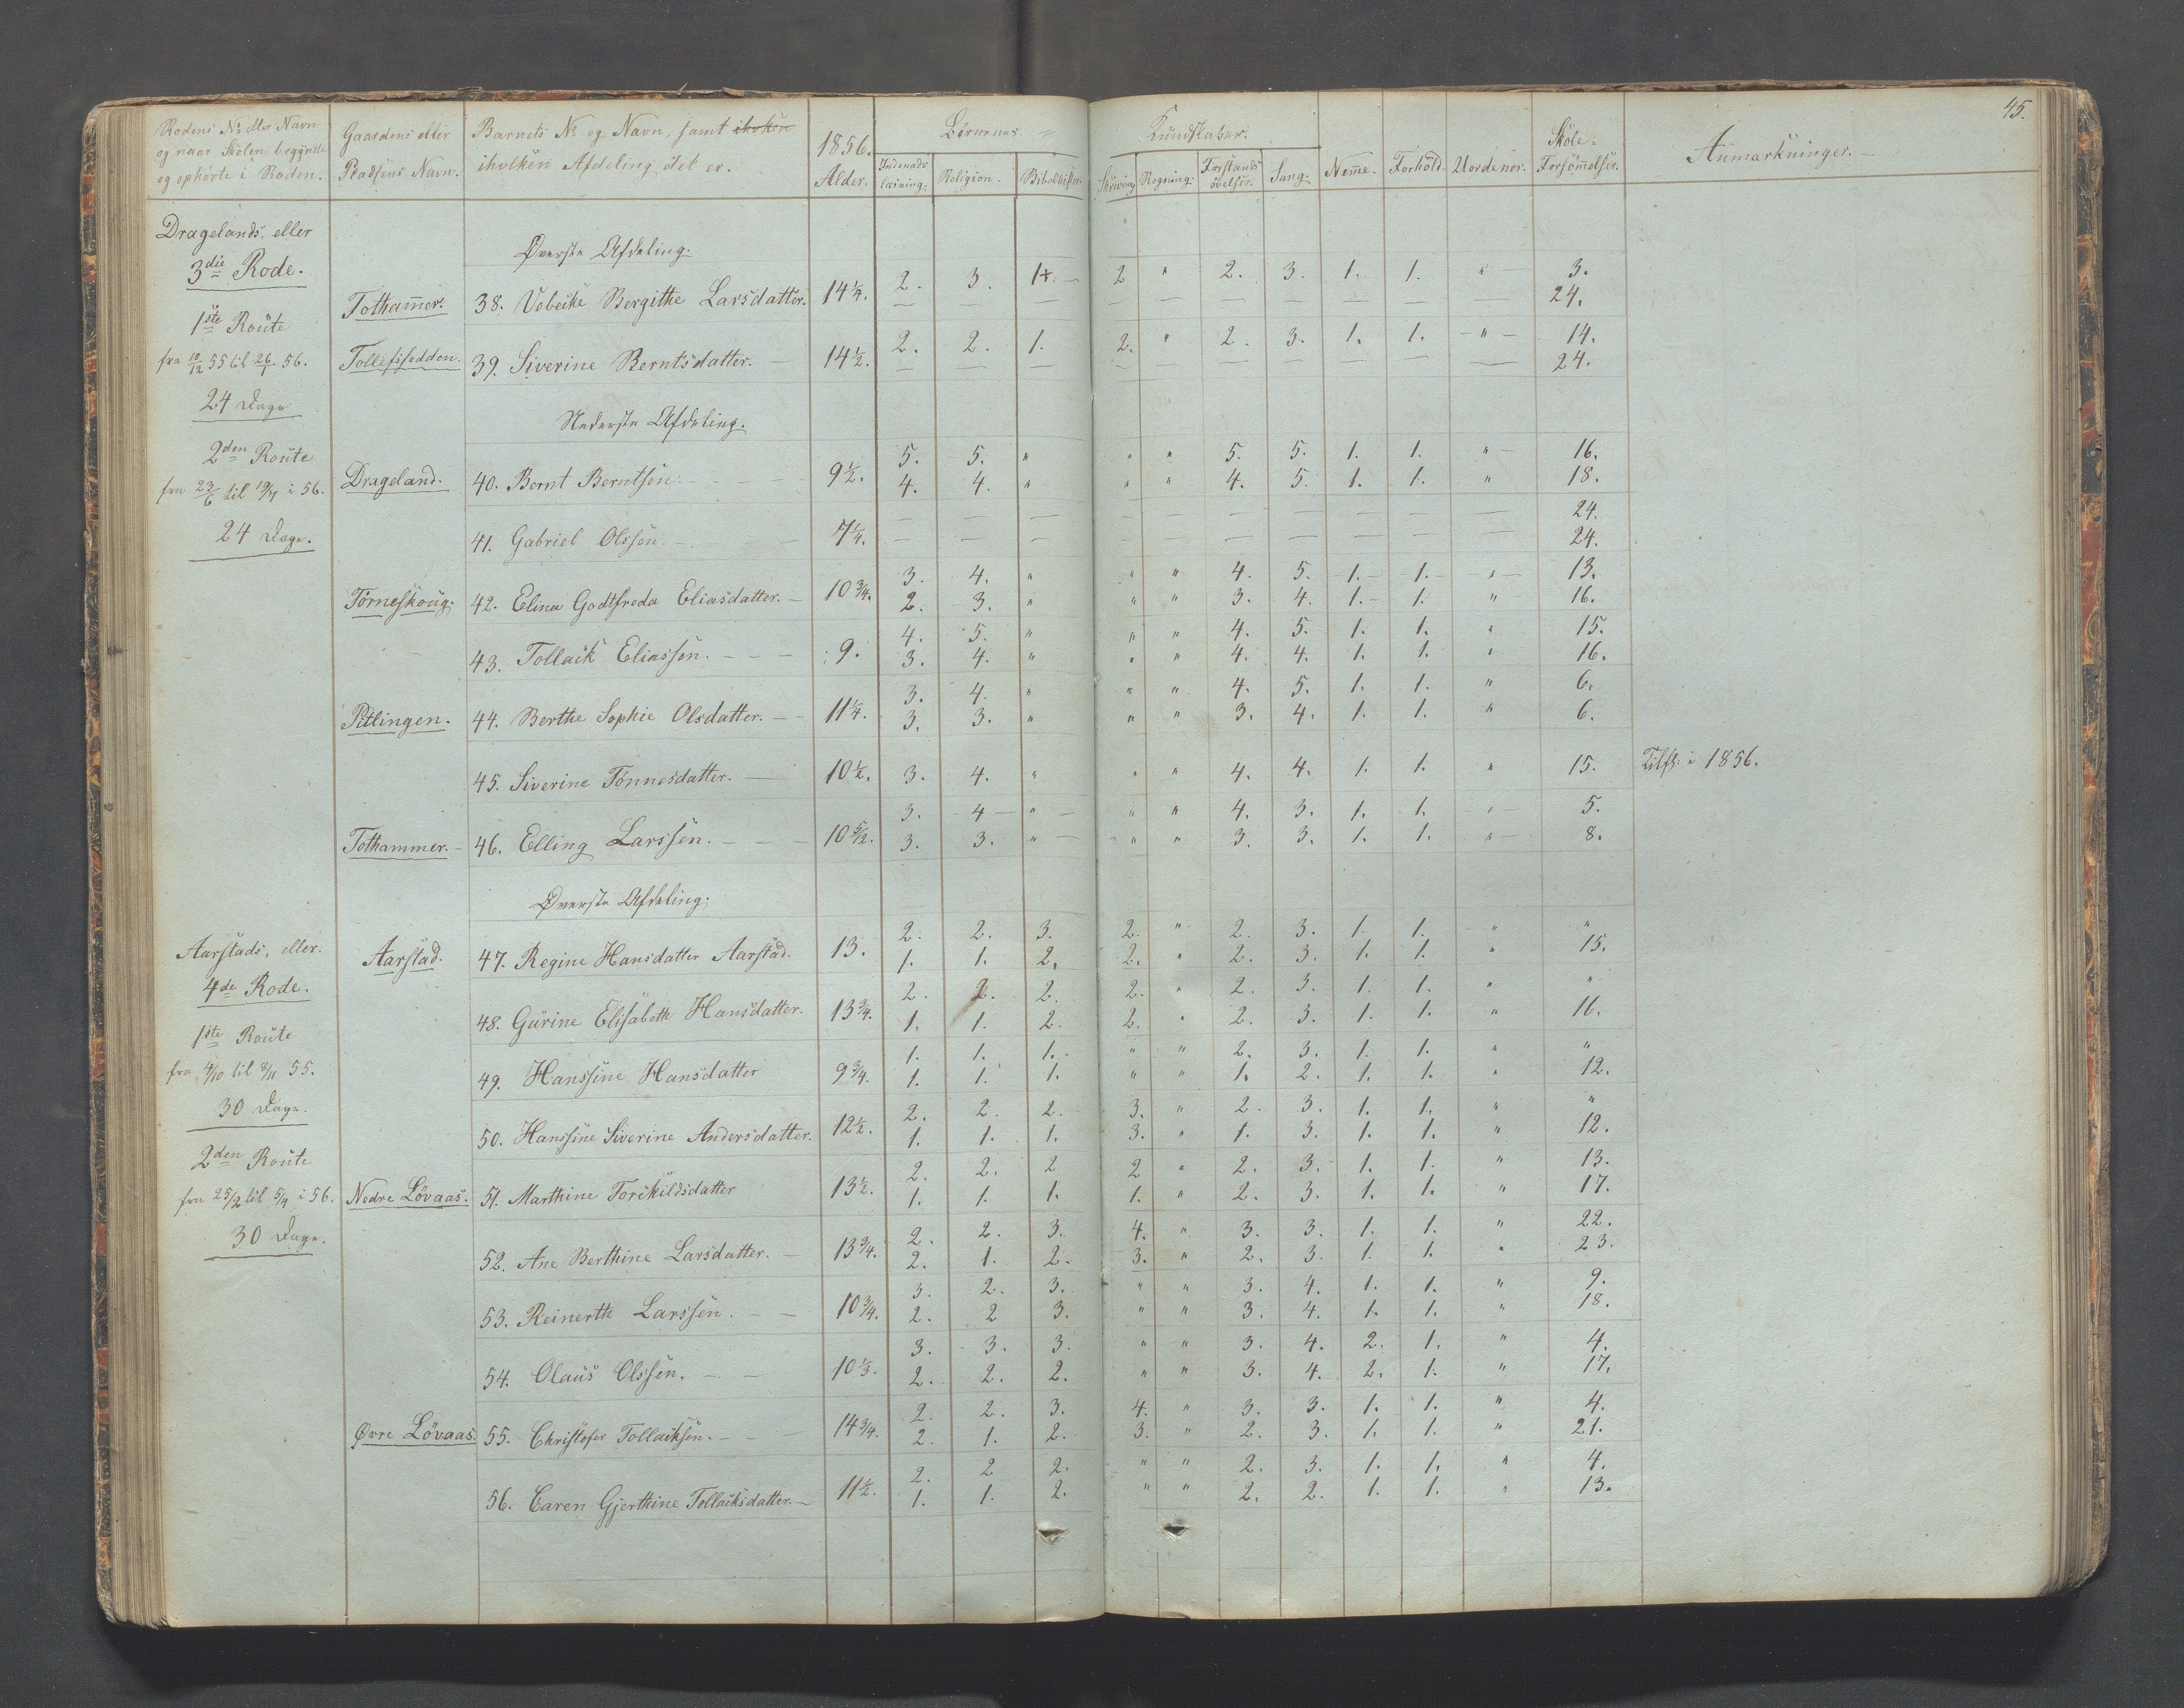 45.
Rodens No eller Navn og naar Skolen begyndte og ophörte i Roden. Gaardens eller Pladsens Navn. Barnets No og Navn, samt ihvken ihvlken Afdeling det er. 1856. Alder. Börnenes = Kundskaber. Indenads læsning. Religion. Bibelhistorie Skrivning Regning. Forstands övelser. Sang. Nemme. Forhold. Uordener. Skole= Forsömmelser. Anmærkninger.
Dragelands, eller
3die Rode.
Øverste Afdeling.
Tothammer. 38. Vebeike Bergithe Larsdatter. 14 1/4. 2. 3. 1. 2 " 2. 3. 1. 1. " 3.
— — — — — — — — 24.
1ste Route
fra 10/12 55 til 26/1 56.
Tollefsfedden. 39. Siverine Berntsdatter. 14 1/2. 2. 2. 1. 2. " 2. 3. 1. 1. " 14.
— — — — — — — — — 24.
24 Dage
Nederste Afdeling.
2den Route
fra 23/6 til 19/7 i 56.
24 Dage.
Drageland. 40. Bernt Berntsen. 9 1/2. 5. 5. " " " 5. 5. 1. 1. " 16.
4. 4. " " " 4. 5. 1. 1. " 18.
41. Gabriel Olssen. 7 1/4. — — — — — — — — — — 24.
— — — — — — — — — — 24.
Törneskoug. 42. Elina Godtfreda Eliasdatter. 10 3/4. 3. 4. " " " 4. 5. 1. 1. " 13.
2. 3. " " " 3. 4. 1. 1. " 16.
43. Tollaik Eliassen. 9. 4. 5. " " " 4. 5. 1. 1. " 15.
3. 4. " " " 4. 4. 1. 1. " 16.
Pitlingen. 44. Berthe Sophie Olsdatter. 11 1/4. 3. 4. " " " 4. 5. 1. 1. " 6.
3. 3. " " " 3. 4. 1. 1. " 6.
45. Siverine Tönnesdatter. 10 1/2. 3. 4. " " " 4. 4. 1. 1. " 15. Tilfl: i 1856.
Tothammer. 46. Elling Larssen. 10 5/12. 3. 4 " " " 4. 3. 1. 1. " 5.
3. 3. " " " 3. 3. 1. 1. " 8.
Øverste Afdeling.
Aarstads, eller
4de Rode.
1ste Route
fra 4/10 til 8/11 55.
30 Dage.
2den Route
fra 25/2 til 5/4 i 56.
30 Dage.
Aarstad. 47. Regine Hansdatter Aarstad. 13. 2. 2. 3. 2. " 2. 3. 1. 1. " "
1. 1. 2. 2. " 2. 3. 1. 1. " 15.
48. Gurine Elisabeth Hansdatter. 13 3/4. 2. 2. 2. 2. " 2. 3. 1. 1. " "
1. 1. 2. 2. " 2. 3. 1. 1. " 16.
49. Hanssine Hansdatter 9 3/4. 1. 1. 1. " " 2. 3. 1. 1. " "
1. 1. 1. " " 1. 2. 1. 1. " 12.
50. Hanssine Siverine Andersdatter. 12 1/2. 2. 2. 2. 3. " 2. 3. 1. 1. " "
1. 1. 1. 3. " 1. 3. 1. 1. " 12.
Nedre Lövaas. 51. Marthine Torskildsdatter 13 1/2. 2. 2. 2 2 " 2. 3. 1. 1. " 13.
1. 1. 1. 1. " 2. 3. 1. 1. " 17.
52. Ane Berthine Larsdatter. 13 3/4. 2. 2. 3. 4. " 3. 3. 1. 1. " 22.
2. 1. 2. 3. " 2. 3. 1. 1. " 23.
53. Reinerth Larssen. 10 3/4. 3. 2. 3. " " 3. 4. 1. 1. " 9.
2. 2 3. " " 3. 4. 1. 1. " 18.
54. Olaus Olssen. 10 1/3. 3. 3. 3. " " 3. 4. 2. 1. " 4.
2. 2. 2. " " 3. 4. 2. 1. " 17.
Øvre Lövaas. 55. Christofer Tollaiksen. 14 3/4. 2. 2. 3. 4. " 3. 3. 1. 1. " 4.
2. 1. 2. 3. " 2. 3. 1. 1. " 21.
56. Caren Gjerthine Tollaiksdatter. 11 1/2. 2. 2 2. " " 2. 3. 1. 1. " 4.
1. 1. 2. " " 2. 2. 1. 1. " 13.